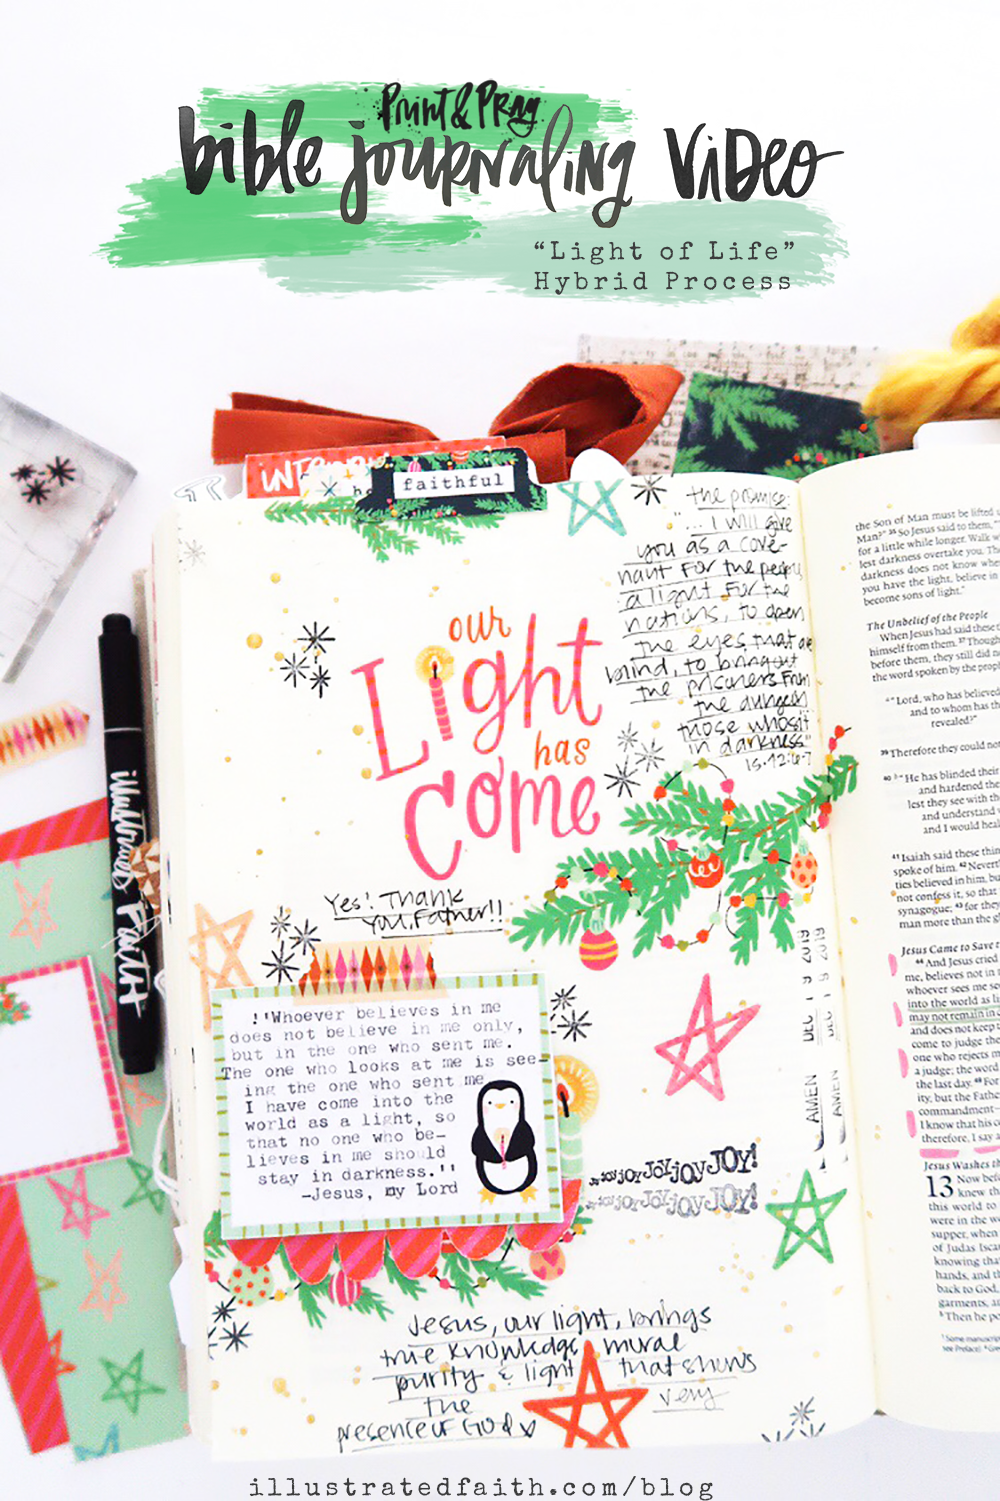 Print & Pray
bible journaling video
“Light of Life”
Hybrid Process
faithful
the promise:
"... I will give
you as a cove-
nant for the people,
a light for the
nations, to open
the eyes that are
blind, to bring out
the prisoners from
the dungeon
those who sit
in darkness"
IS. 42:6-7
our
Light
has
Come
Yes! Thank
You, Father!!
illustrated Faith
"Whoever believes in me
does not believe in me only,
but in the one who sent me.
The one who looks at me is see-
ing the one who sent me
I have come into the
world as a light, so
that no one who be-
lieves in me should
stay in darkness."
-Jesus, my Lord
DEC 19 2019
DEC 19 2019
AMEN
AMEN
joy joy JOY joy JOY!
joy joy JOY joy JOY!
Jesus, our light, brings
true knowledge, moral
purity & light that shows
the very
presence of God
the Son of Man must be lifted
Man?" 35 So Jesus said to them,
for a little while longer. Walk
lest darkness overtake you. The
darkness does not know where
you have the light, believe in
become sons of light."
The Unbelief of the People
When Jesus had said these
himself from them. 37 Though
before them, they still did
the word spoken by the
"Lord, who has believed
and to whom has the
revealed?"
39 Therefore they could
40 "He has blinded their
and hardened their
lest they see with
and understand
and I would heal
41 Isaiah said these
spoke of him. 42
ties believed in him, but
not confess it, so that
synagogue; 43 for they
man more than the
Jesus Came to Save
44 And Jesus cried
me, believes not in
whoever sees me
into the world as
may not remain in
and does not keep
come to judge the
one who rejects
a judge; the word
the last day. 49 For
ity, but the Father
commandment—
I know that his
therefore, I say
Jesus Washes
13 Now
knew
this world to
were in the
supper, when
of Judas
knowing that
hands, and
back to God,
garments,
5 Then he
1 Some
see Preface)
illustratedfaith.com/blog